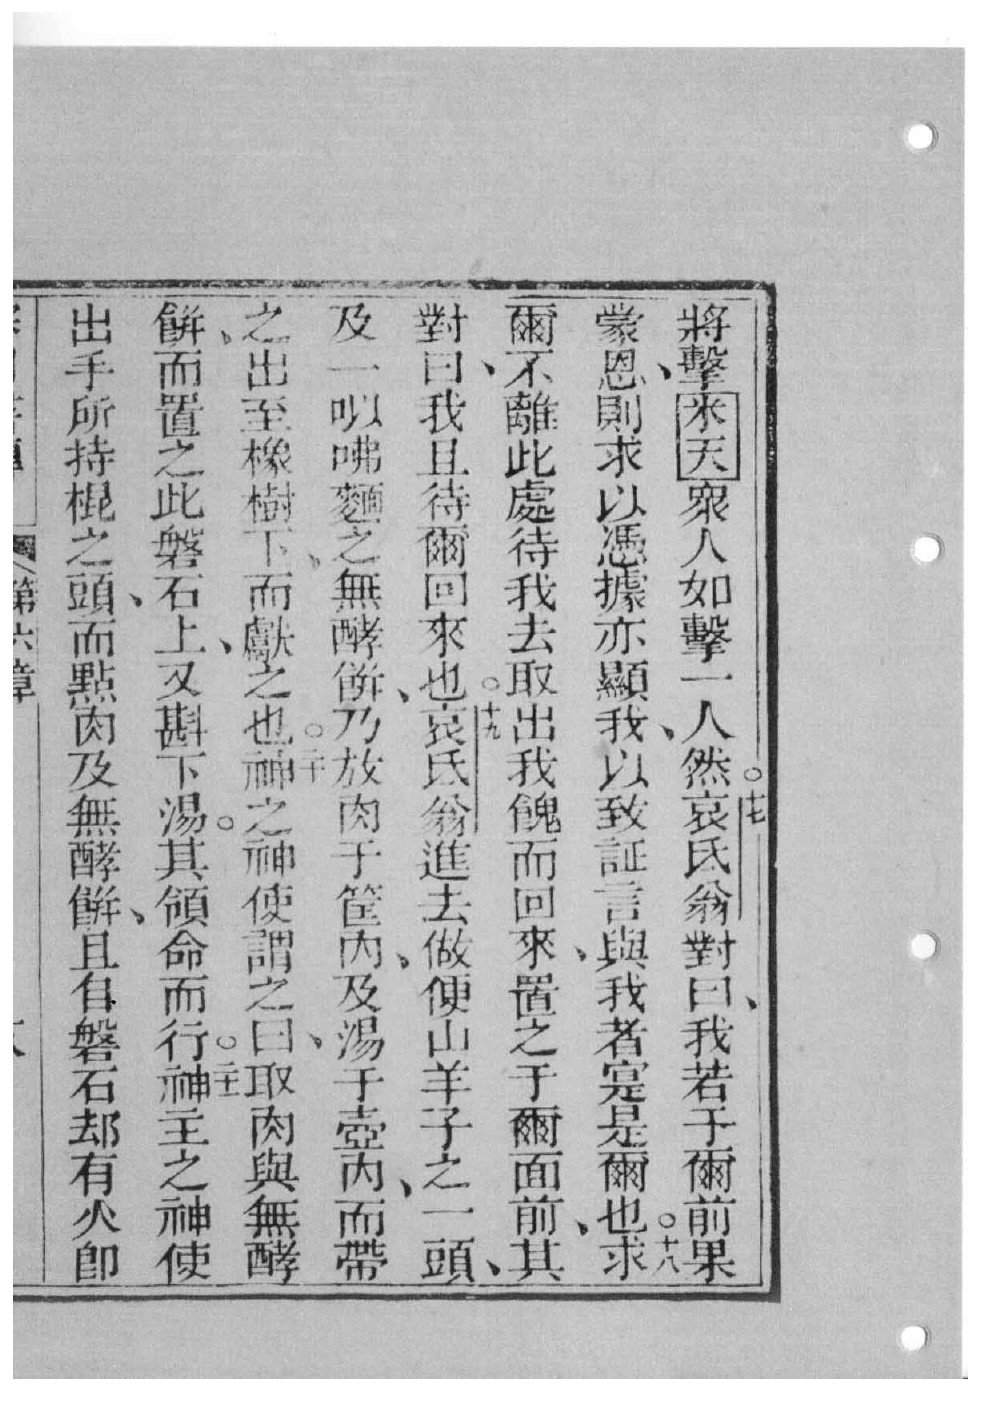 將擊米天衆人如擊一人然。十七哀氏翁對曰、我若于爾前果
蒙恩、則求以憑據亦顯我、以致証言與我者寔是爾也。十八求
爾不離此處待我去取出我餽而回來、置之于爾面前、其
對曰、我且待爾回來也。十九哀氏翁進去做便山羊子之一頭、
及一呅咈麵之無酵餅、乃放肉于筐內、及湯于壺內、而帶
之出至橡樹下、而獻之也。二十神之神使謂之曰、取肉與無酵
餅、而置之此磐石上、又斟下湯。其領命而行。二十一神主之神使
出手所持棍之頭、而點肉及無酵餅、且自磐石却有火卽
第六章